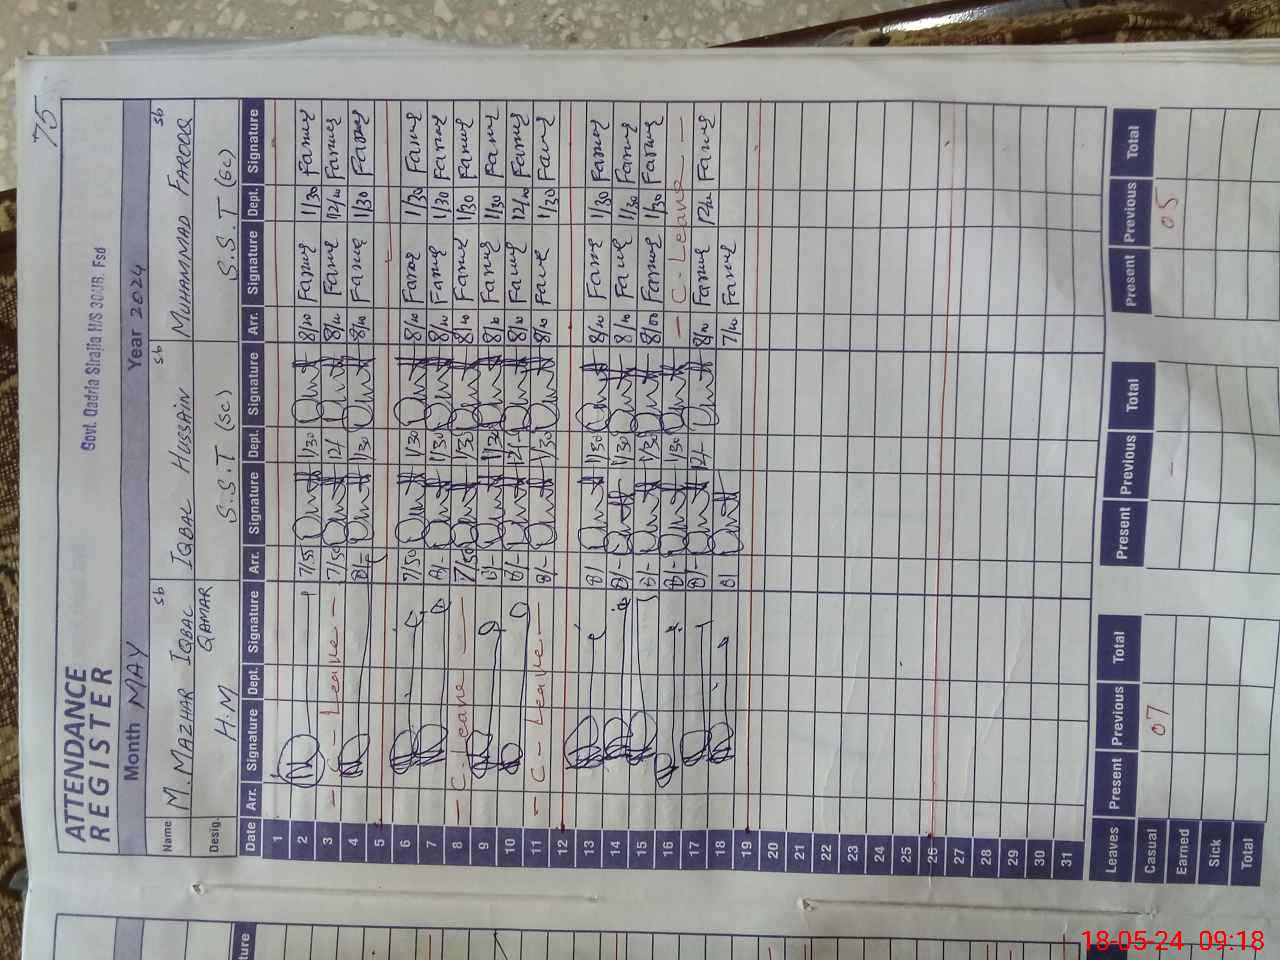 75
ATTENDANCE REGISTER
Govt. Qadria Sirajia H/S 30/JB. Fsd
Month MAY Year 2024
Name M. MAZHAR IQBAL QAMAR sb IQBAL HUSSAIN sb MUHAMMAD FAROOQ sb
Desig. H.M S.S.T (SC) S.S.T (SC)
Date Arr. Signature Dept. Signature Arr. Signature Dept. Signature Arr. Signature Dept. Signature
1
2 7/55 1/30 8/10 Farooq 1/30 Farooq
3 - C - Leave - 7/50 12/- 8/10 Farooq 12/10 Farooq
4 8/- 1/30 8/10 Farooq 1/30 Farooq
5
6 7/50 1/30 8/10 Farooq 1/30 Farooq
7 8/- 1/30 8/10 Farooq 1/30 Farooq
8 - C. Leave - 7/50 1/30 8/10 Farooq 1/30 Farooq
9 8/- 1/30 8/10 Farooq 1/30 Farooq
10 8/- 12/- 8/10 Farooq 12/10 Farooq
11 - C - Leave - 8/- 1/30 8/10 Farooq 1/30 Farooq
12
13 8/ 1/30 8/10 Farooq 1/30 Farooq
14 8/- 1/30 8/10 Farooq 1/30 Farooq
15 8/- 1/30 8/00 Farooq 1/30 Farooq
16 8/- 1/30 - C - Leave -
17 8/- 12/- 8/10 Farooq 12/10 Farooq
18 8/ 7/10 Farooq
19
20
21
22
23
24
25
26
27
28
29
30
31
Leaves Present Previous Total Present Previous Total Present Previous Total
Casual 07 - 05
Earned
Sick
Total
ture
18-05-24 09:18